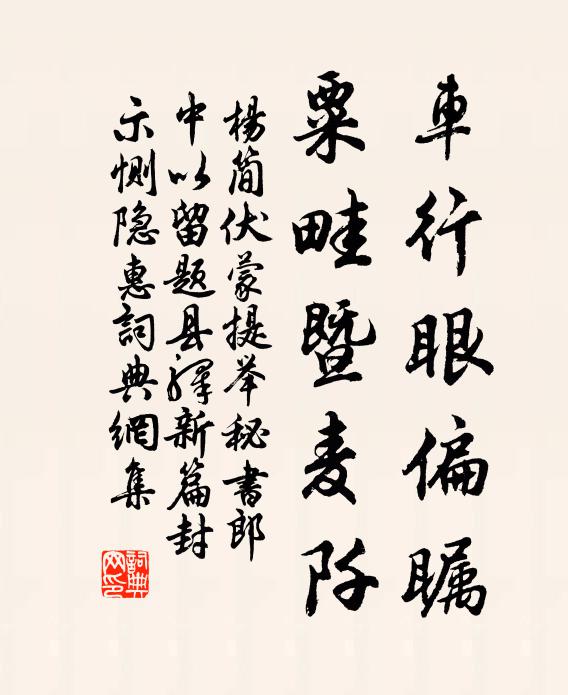 車行眼偏瞩
粟畦暨麦阡
楊简伏蒙提举秘書郎
中以留题县驛新篇封
示恻隐惠詞典網集
詞典网印